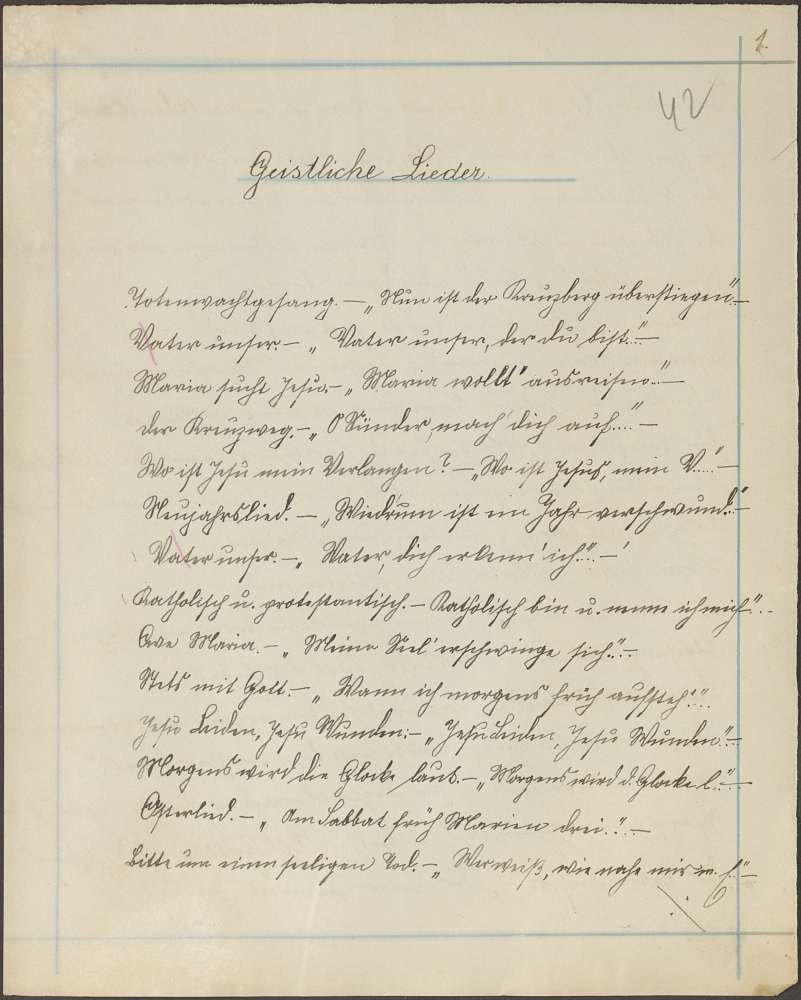 1.
42
Geistliche Lieder.
Totenwachtgesang. — „Nun ist der Kreuzberg überstiegen" —
Vater unser. — „Vater unser, der du bist..." —
Maria sucht Jesu. — „Maria wollt' ausreisen.." —
der Kreuzweg. — „O Sünder, mach' dich auf...." —
Wo ist Jesu mein Verlangen? — „Wo ist Jesus, mein V....." —
Neujahrslied. — „Wied'rum ist ein Jahr verschwund.." —
Vater unser. — „Vater, dich erkenn' ich..." —
Katholisch u. protestantisch. — Katholisch bin u. nenne ich mich..." —
Ave Maria. — „Meine Seel' erschwinge sich..." —
Stets mit Gott. — „Wann ich morgens früh aufsteh'..."
Jesu Leiden, Jesu Wunden: — „Jesu Leiden, Jesu Wunden" —
Morgens wird die Glocke laut. — „Morgens wird d. Glocke l..." —
Osterlied. — „Am Sabbat früh Marien drei..." —
Bitte um einen seeligen Tod. — „Wer weiß, wie nahe mir m. E.." —